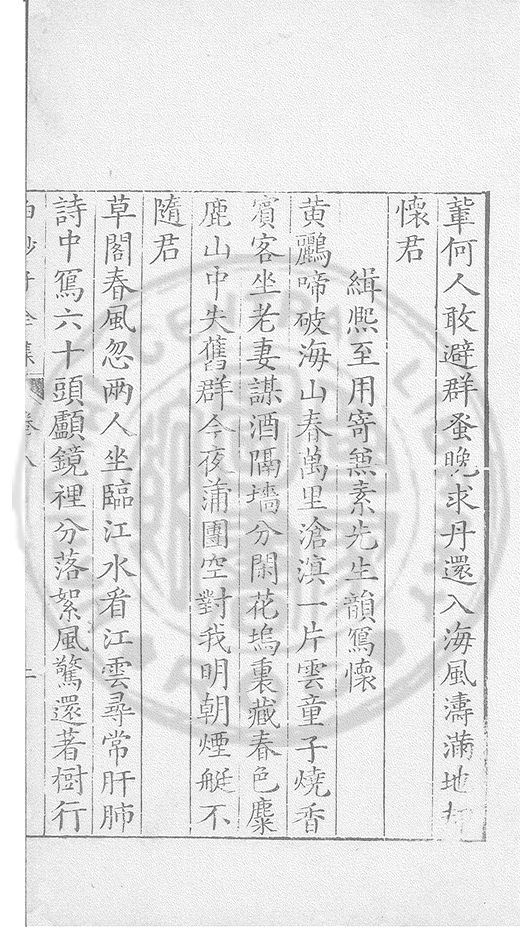 葷何人敢避群蚤晚求丹還入海風濤滿地却
懷君
緝熙至用寄無素先生韻寫懷
黃鸝啼破海山春萬里滄溟一片雲童子燒香
賓客坐老妻謀酒隔墻分閑花塢裏藏春色麋
鹿山中失舊群今夜蒲團空對我明朝煙艇不
隨君
草閣春風忽兩人坐臨江水看江雲尋常肝肺
詩中寫六十頭顱鏡裡分落絮風驚還著樹行
白沙子全集 卷八 二